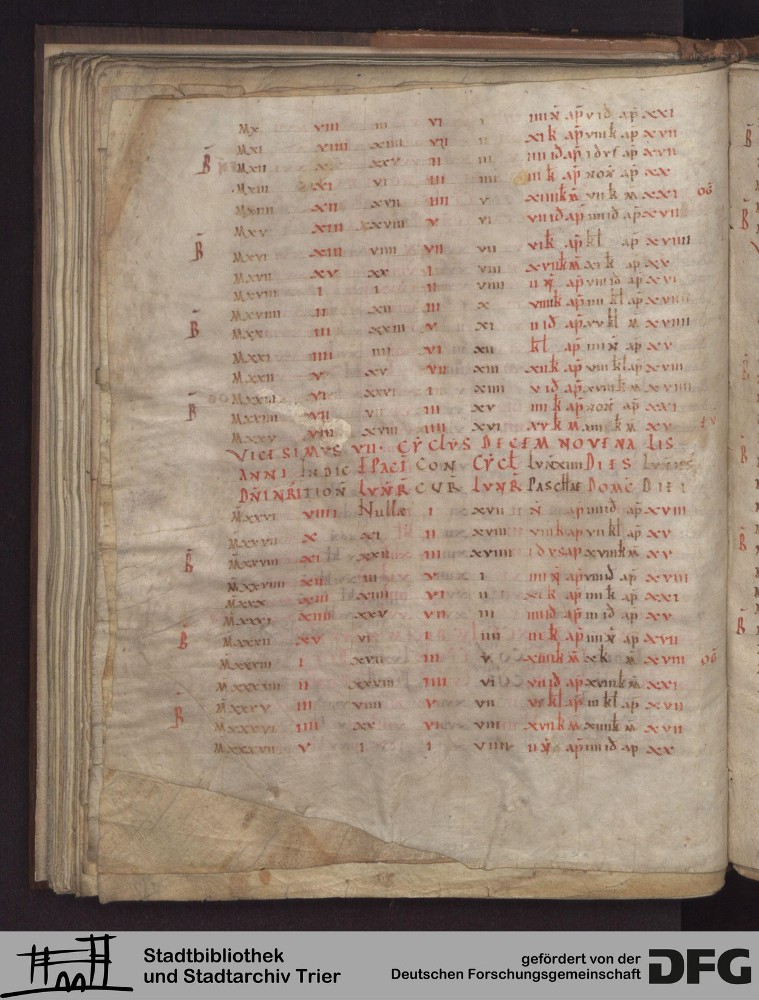 Mx viii iii vi i iiii n̄ ap̄ v id ap̄ xxi
Mxi viiii xiiii vii ii xi k ap̄ viii k ap̄ xvii
B̄ Mxii x xxv ii iii iiii id ap̄ idus ap̄ xvii
Mxiii xi vi iii iiii iii k ap̄ non̄ ap̄ xx
Mxiiii xii xvii iiii v xiiii k m̄ vii k m xxi og̅
Mxv xiii xxviii v vi vii id ap̄ iiii id ap̄ xvii
B̄ Mxvi xiiii viiii vii vii vi k ap̄ kl ap̄ xviiii
Mxvii xv xx i viii xvii k m̄ xi k ap̄ xx
Mxviii i i ii viiii ii n̄ ap̄ viii id ap̄ xvi
Mxviiii ii xii iii x viiii k ap̄ iiii kl ap̄ xviiii
B̄ Mxx iii xxiii v xi ii id ap̄ xv kl m xviiii
Mxxi iiii iiii vi xii kl ap̄ iiii n̄ ap̄ xv
Mxxii v xv vii xiii xii k ap̄ viii kl ap̄ xviii
Mxxiii vi xxvi i xiiii v id ap̄ xviiii
B̄ Mxxiiii vii vii iii xv iiii k ap̄ non̄ ap̄ xxi
Mxxv viii xviii iiii xvi xv k m xv
VICESIMVS VII · CYCLVS DECEM NOVENALIS
ANNI INDIC EPACT CON CYCL LVN XIIII DIES LVNE
DN̄I NR̄I TION̄ LVNR̄ CVR̄ LVNR̄ PASCHAE DOMC̄ DIEI
Mxxvi viiii Nullae i xvii n̄ ap̄ iiii id ap̄ xviii
Mxxvii x xi ii xviii viii k ap̄ vii kl ap̄ xv
B̄ Mxxviii xi xxii iii xviiii idus ap̄ xviii k m̄ xv
Mxxviiii xii iii v i iiii n̄ ap̄ viii id ap̄ xviii
Mxxx xiii xiiii vi ii xi k ap̄ iiii k ap̄ xxi
Mxxxi xiiii xxv vii iii iiii id ap̄ iii id ap̄ xv
B̄ Mxxxii xv vi i iiii iii k ap̄ iiii n̄ ap̄ xvii
Mxxxiii i xvii iii v xiiii k m̄ x k m̄ xviii og̅
Mxxxiiii ii xxviii iiii vi vii id ap̄ xviii k m xxi
Mxxxv iii viiii v vii vi kl ap̄ iii kl ap̄ xvii
B̄ Mxxxvi iiii xx vi viii xvii k m xiiii k m xvii
Mxxxvii v i i viiii ii n̄ ap̄ iiii id ap̄ xx
Stadtbibliothek
und Stadtarchiv Trier
gefördert von der
Deutschen Forschungsgemeinschaft
DFG